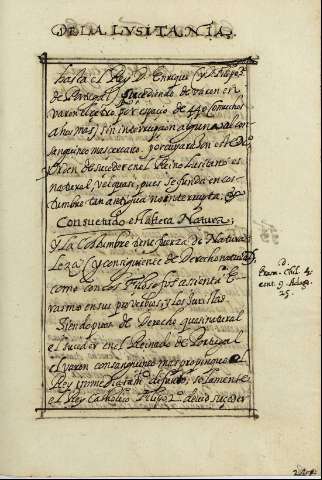 DE LA LVSITANIA.
hasta el Rey D. Enrique (y Philipo 2º
de Portugal) sucediendo de varon en
varon el cetro por espacio de 440 (o muchos
años mas) sin interrupcion alguna al con
sanguineo mas cercano. por cuya razon este
orden de suceder en el Reino Lusitano es
natural, y el quasi; pues se funda en cos
tumbre tan antigua no interrupta;
Consuetudo est altera Natura;
y La Costumbre tiene fuerza de Natura
leza (y consiguiente de Derecho natural)
como con los Filosofos asienta E
rasmo en sus proverbios, y los Juristas
Siendo pues de Derecho quasi natural
el suceder en el Reinado de Portugal
el varon consanguineo mas propinquo al
Rey immediatamte. difunto, solamente
el Rey Catholico Filipo 2º. devio suceder
d.
Erasm. Chil. 4.
cent. 9. Adag.
25.